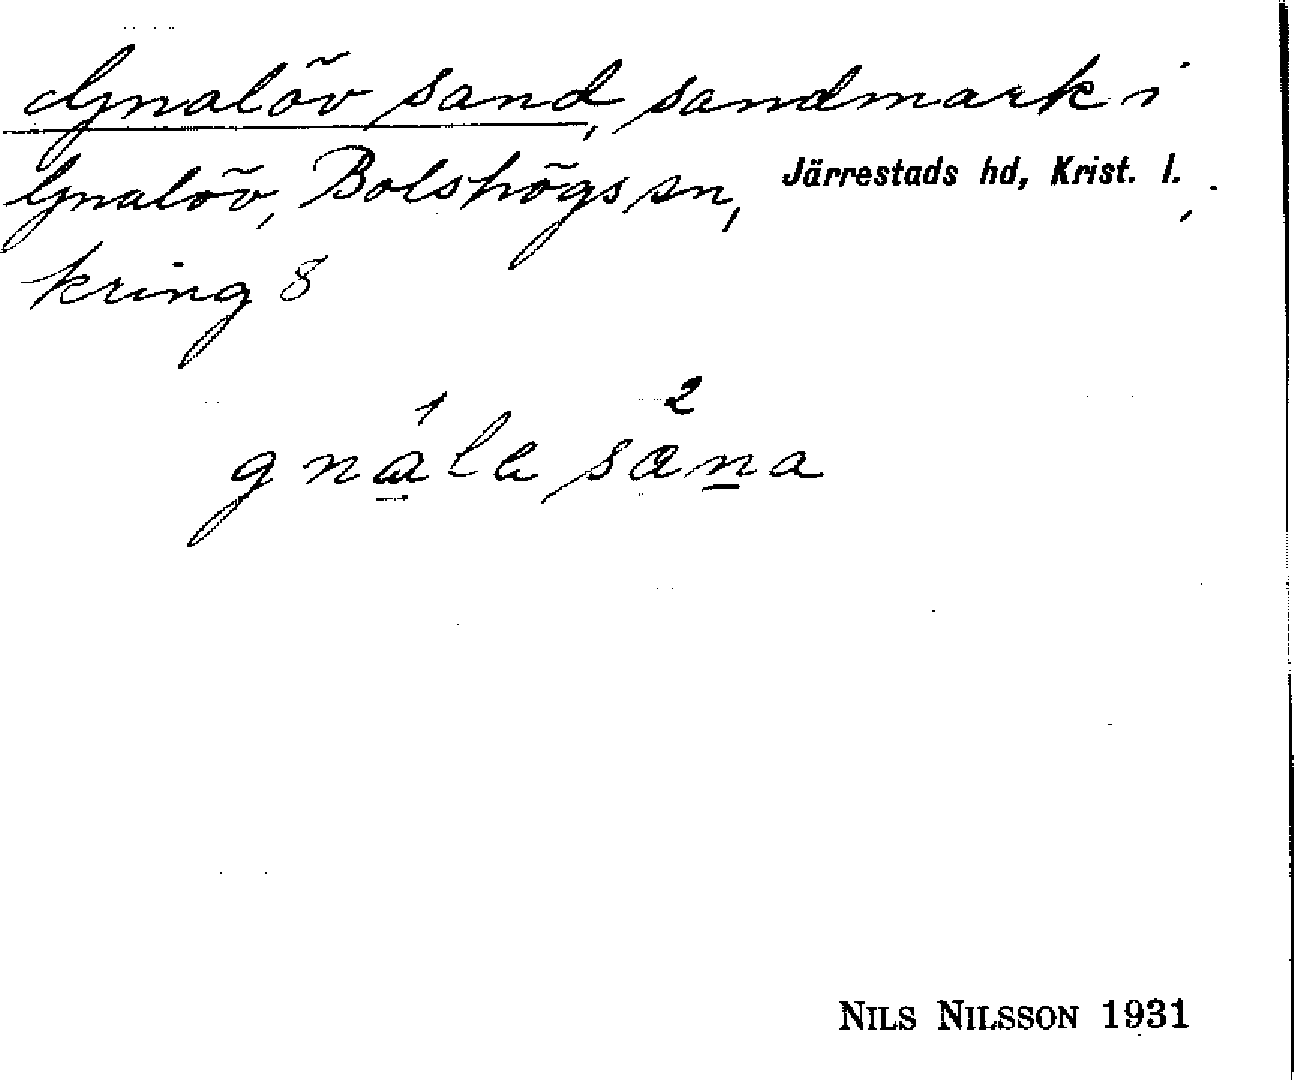 Gnalöv sand, sandmark i
Gnalöv, Bolshögs sn, Järrestads hd, Krist. l.,
kring 8
1 2
gnala sana
NILS NILSSON 1931